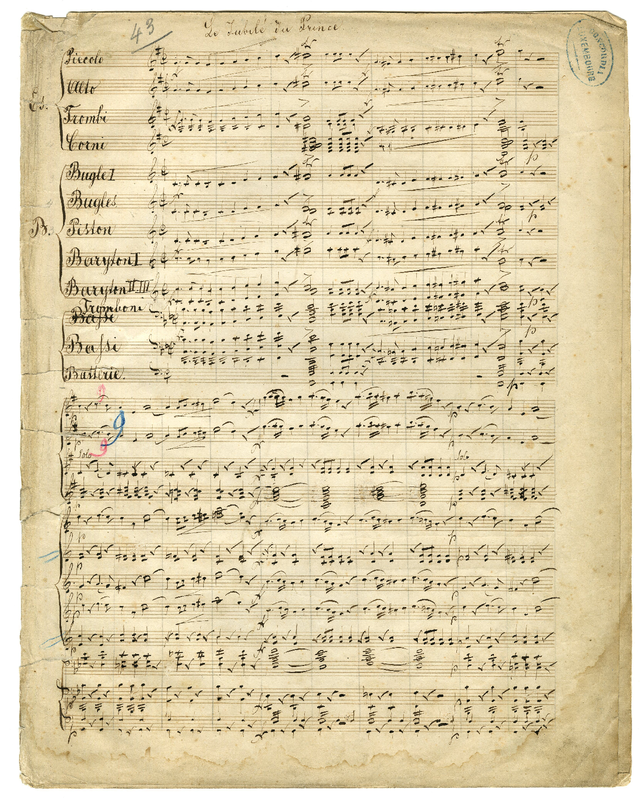 43
Le Jubilé du Prince
LUXEMBOURG
Piccolo
Alto
Es.
Trombi
Corni
Bugle I
Bugles
B.
Piston
Baryton I
Baryton II III
Trombone
Bassi
Bassi
Batterie.
p
p
p
p
9
Solo
Solo